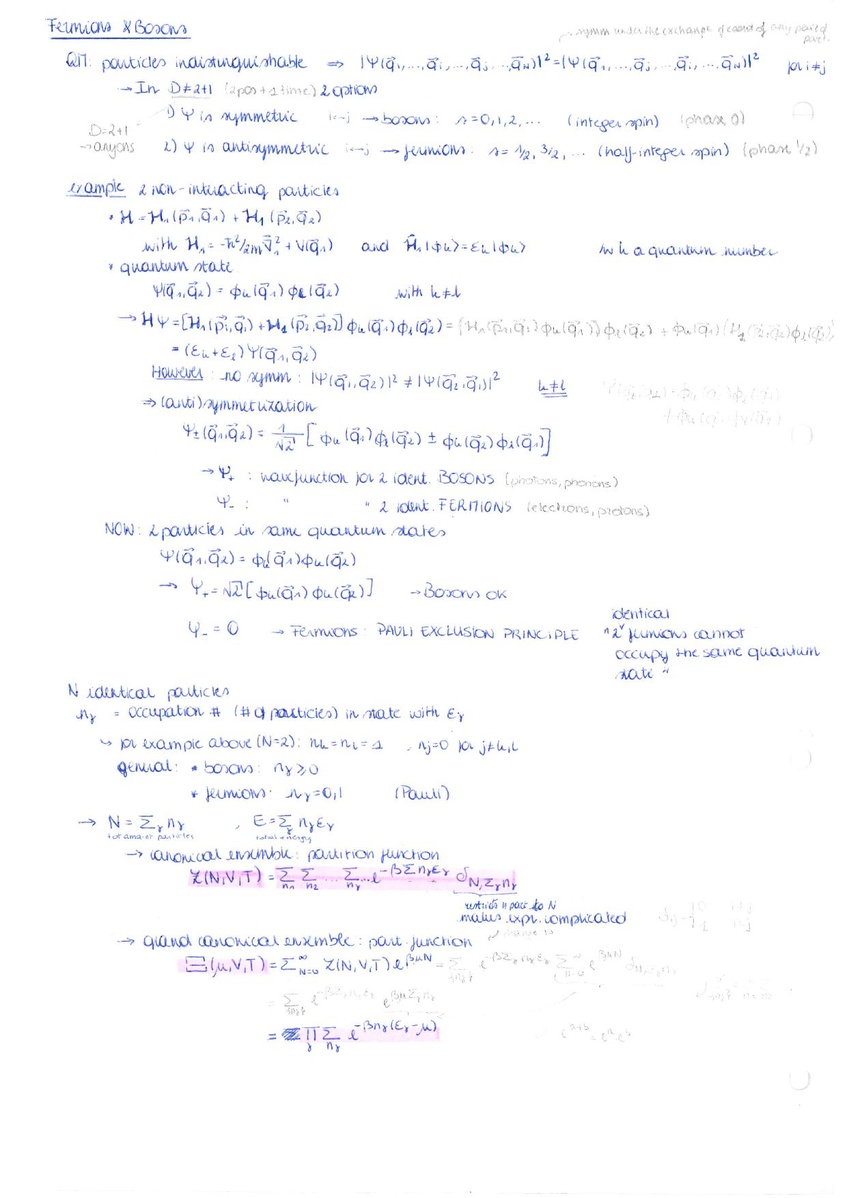 Fermions & Bosons
symm under the exchange of coord of any pair of part.
QM: particles indistinguishable ⇒ |Ψ(q⃗₁,...,q⃗ᵢ,...,q⃗ⱼ,...,q⃗_N)|² = |Ψ(q⃗₁,...,q⃗ⱼ,...,q⃗ᵢ,...,q⃗_N)|² for i≠j
→ In D≠2+1 (2pos + 1 time) 2 options
1) Ψ is symmetric i↔j → bosons: s=0,1,2,... (integer spin) (phase 0)
D=2+1
→ anyons
2) Ψ is antisymmetric i↔j → fermions: s=1/2, 3/2, ... (half-integer spin) (phase 1/2)
example 2 non-interacting particles
• H = H₁(p⃗₁,q⃗₁) + H₁(p⃗₂,q⃗₂)
with H₁ = -ħ²/2m ∇⃗₁² + V(q⃗₁) and Ĥ₁|ϕₖ⟩=εₖ|ϕₖ⟩ w k a quantum number
• quantum state
Ψ(q⃗₁,q⃗₂) = ϕₖ(q⃗₁) ϕₗ(q⃗₂) with k≠l
→ HΨ = [H₁(p⃗₁,q⃗₁) + H₁(p⃗₂,q⃗₂)] ϕₖ(q⃗₁)ϕₗ(q⃗₂) = (H₁(p⃗₁,q⃗₁)ϕₖ(q⃗₁))ϕₗ(q⃗₂) + ϕₖ(q⃗₁)(H₁(p⃗₂,q⃗₂)ϕₗ(q⃗₂))
= (εₖ+εₗ)Ψ(q⃗₁,q⃗₂)
However: no symm: |Ψ(q⃗₁,q⃗₂)|² ≠ |Ψ(q⃗₂,q⃗₁)|² k≠l
⇒ (anti)symmetrization
Ψ±(q⃗₁,q⃗₂) = 1/√2 [ϕₖ(q⃗₁)ϕₗ(q⃗₂) ± ϕₖ(q⃗₂)ϕₗ(q⃗₁)]
→ Ψ₊ : wavefunction for 2 ident. BOSONS (photons, phonons)
Ψ₋ : " " 2 ident. FERMIONS (electrons, protons)
NOW: 2 particles in same quantum states
Ψ(q⃗₁,q⃗₂) = ϕₖ(q⃗₁)ϕₖ(q⃗₂)
→ Ψ₊ = √2 [ϕₖ(q⃗₁)ϕₖ(q⃗₂)] → Bosons ok
Ψ₋ = 0 → Fermions: PAULI EXCLUSION PRINCIPLE "2 identical fermions cannot
occupy the same quantum
state"
N identical particles
nᵧ = occupation # (# of particles) in state with εᵧ
↳ for example above (N=2): nₖ=nₗ=1 , nⱼ=0 for j≠k,l
general: • bosons: nᵧ⩾0
• fermions: nᵧ=0,1 (Pauli)
→ N = Σᵧ nᵧ , E = Σᵧ nᵧεᵧ
tot amount particles total energy
→ canonical ensemble: partition function
Z(N,V,T) = Σ_{n₁} Σ_{n₂} ... Σ_{nᵧ} ... e^{-βΣnᵧεᵧ} δ_{N,Σᵧnᵧ}
restricts # part. to N
makes expr. complicated
→ grand canonical ensemble: part. function
Ξ(μ,V,T) = Σ_{N=0}^∞ Z(N,V,T) e^{βμN} = Σ_{{nᵧ}} e^{-βΣᵧnᵧεᵧ} Σ_{N=0}^∞ e^{βμN} δ_{N,Σᵧnᵧ}
= Σ_{{nᵧ}} e^{-βΣᵧnᵧεᵧ} e^{βμΣᵧnᵧ}
= Πᵧ Σ_{nᵧ} e^{-βnᵧ(εᵧ-μ)} e^{a+b} = e^a e^b